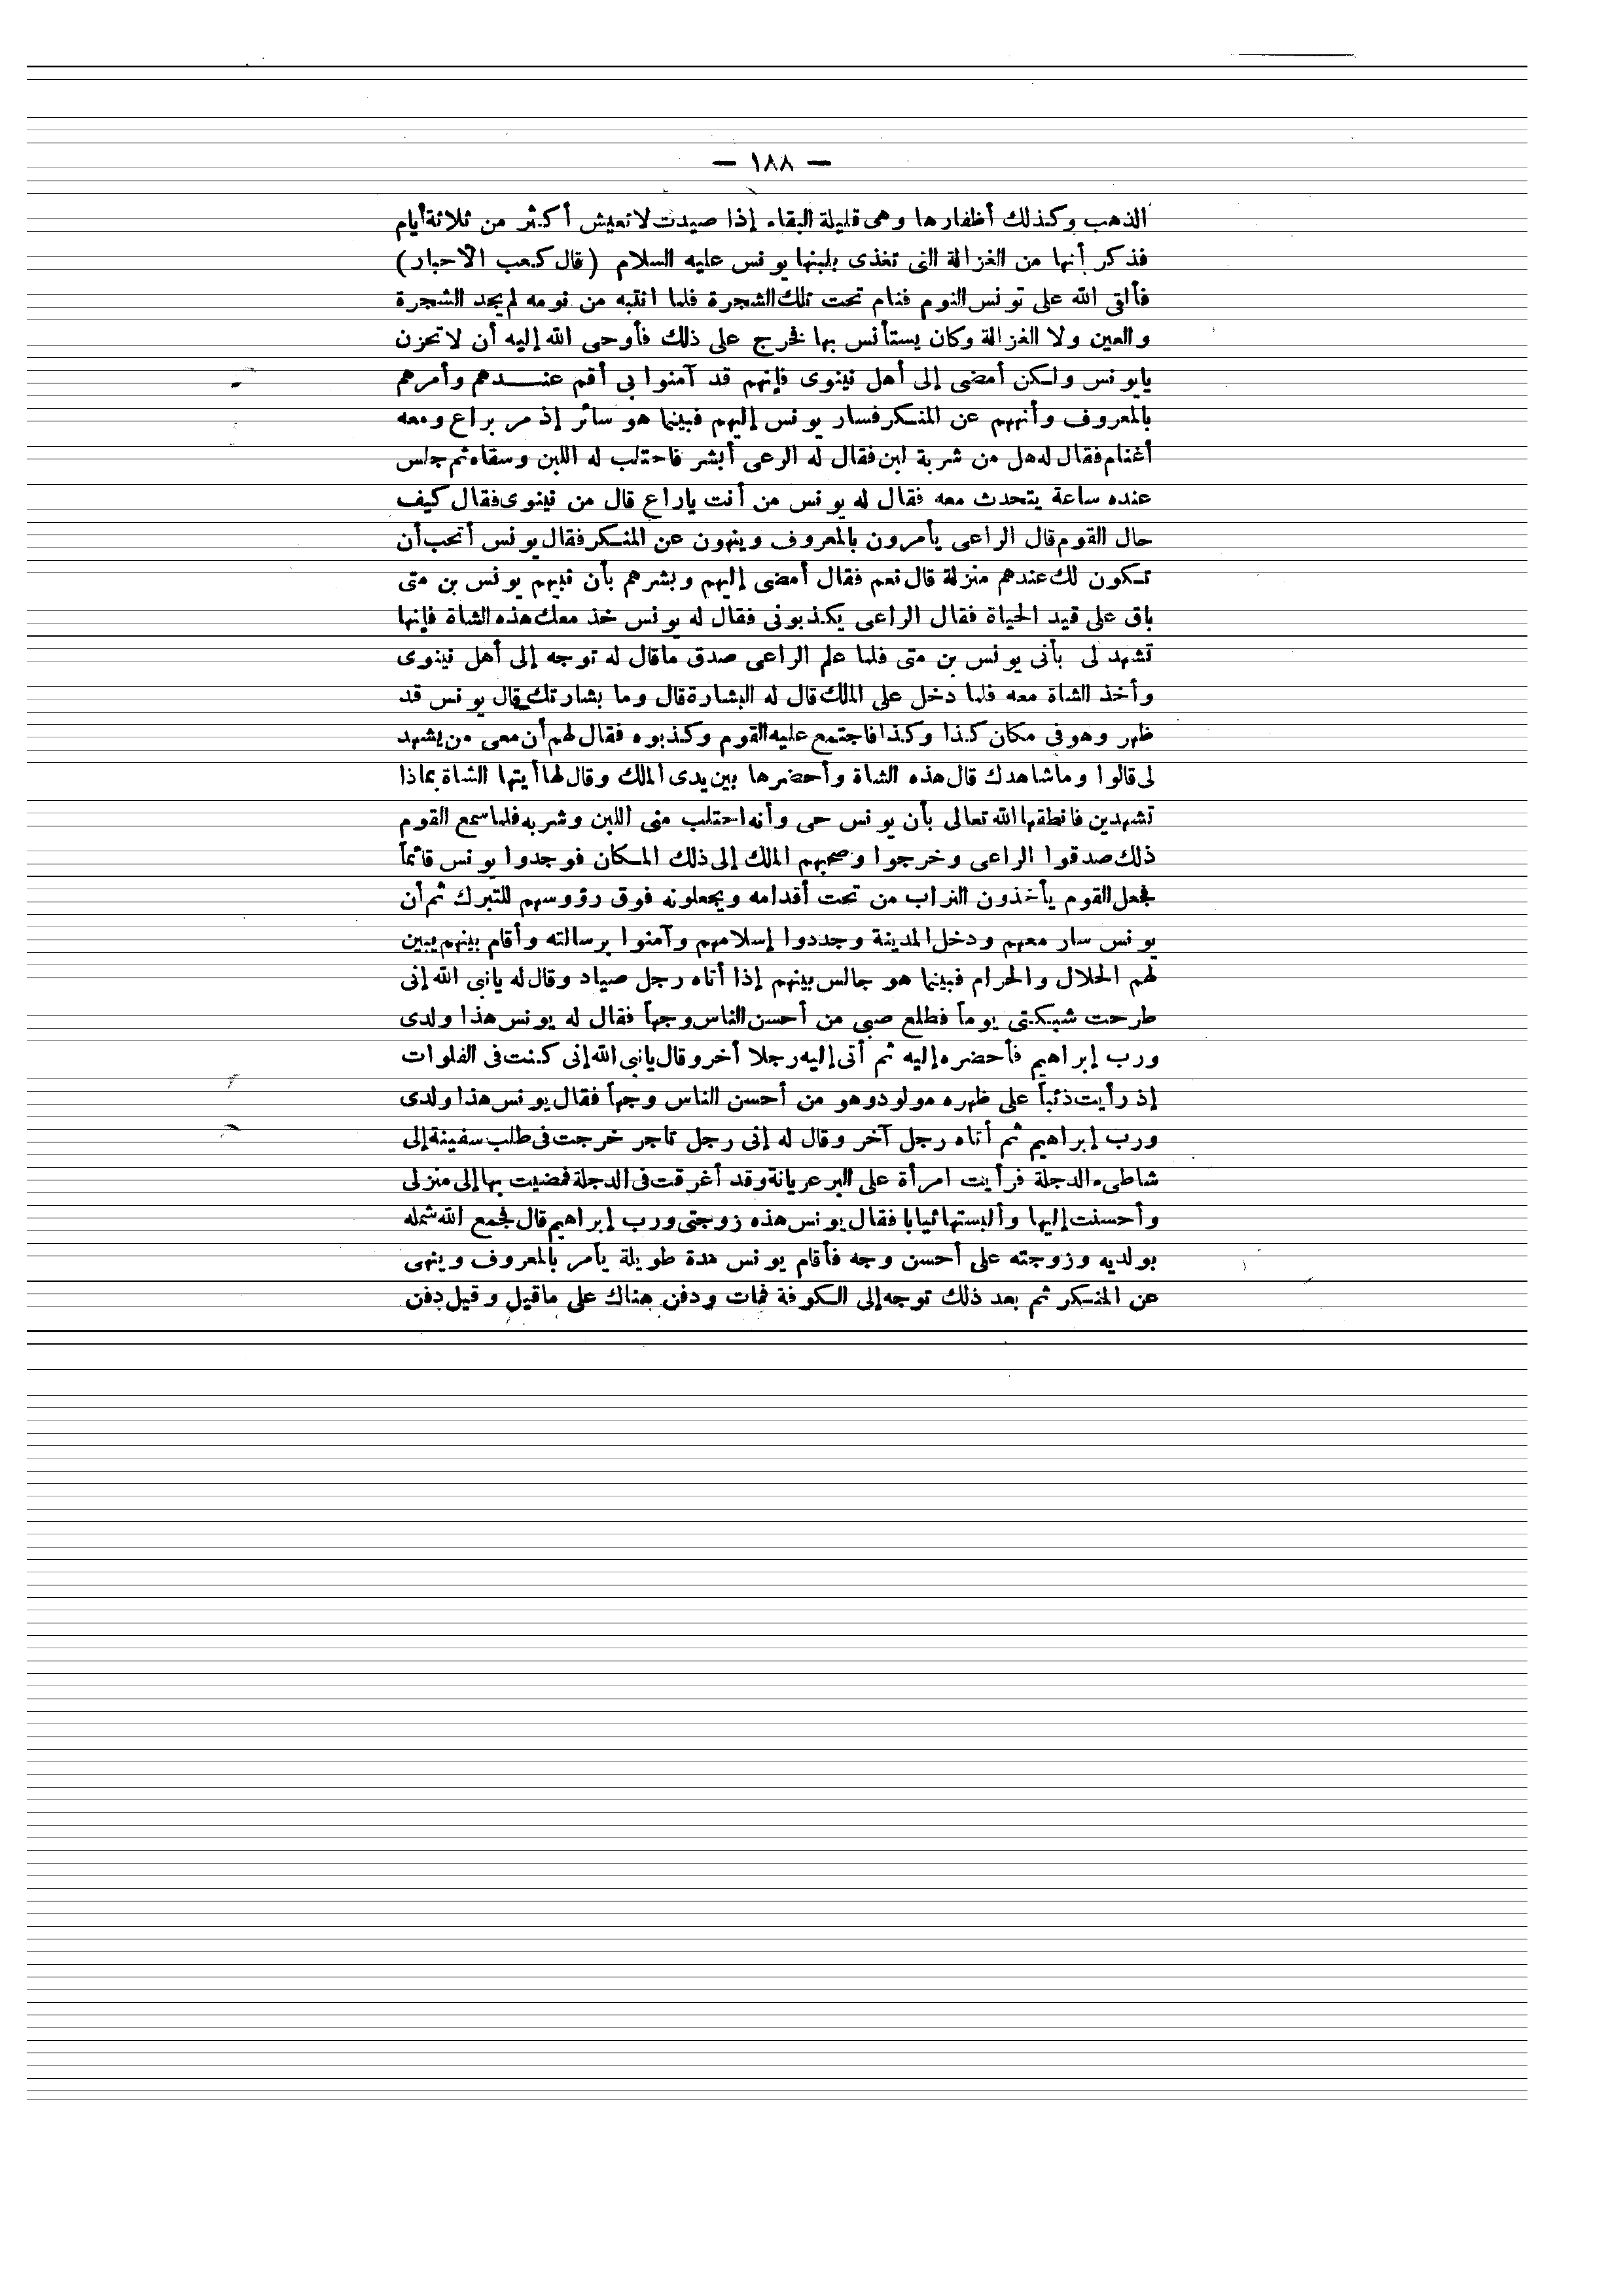 — ١٨٨ —
الذهب وكذلك أظفارها وهى قليلة البقاء إذا صيدت لاتعيش أكثر من ثلاثة أيام
فذكر أنها من الغزالة التى تغذى بلبنها يونس عليه السلام (قال كعب الأحبار)
فألقى الله على تونس النوم فنام تحت تلك الشجرة فلما انتبه من نومه لم يجد الشجرة
والعين ولا الغزالة وكان يستأنس بها فخرج على ذلك فأوحى الله إليه أن لاتحزن
يايونس ولكن أمضى إلى أهل نينوى فإنهم قد آمنوا بى أقم عندهم وأمرهم
بالمعروف وأنههم عن المنكر فسار يونس إليهم فبينما هو سائر إذ مر براع ومعه
أغنام فقال له هل من شربة لبن فقال له الرعى أبشر فاحتلب له اللبن وسقاه ثم جلس
عنده ساعة يتحدث معه فقال له يونس من أنت ياراع قال من نينوى فقال كيف
حال القوم قال الراعى يأمرون بالمعروف وينهون عن المنكر فقال يونس أتحب أن
تكون لك عندهم منزلة قال نعم فقال أمضى إليهم وبشرهم بأن نبيهم يونس بن متى
باق على قيد الحياة فقال الراعى يكذبونى فقال له يونس خذ معك هذه الشاة فإنها
تشهد لى بأنى يونس بن متى فلما علم الراعى صدق ماقال له توجه إلى أهل نينوى
وأخذ الشاة معه فلما دخل على الملك قال له البشارة قال وما بشارتك قال يونس قد
ظهر وهو فى مكان كذا وكذا فاجتمع عليه القوم وكذبوه فقال لهم أن معى من يشهد
لى قالوا وماشاهدك قال هذه الشاة وأحضرها بين يدى الملك وقال لها أيتها الشاة بماذا
تشهدين فانطقها الله تعالى بأن يونس حى وأنه احتلب منى اللبن وشربه فلما سمع القوم
ذلك صدقوا الراعى وخرجوا وصحبهم الملك إلى ذلك المكان فوجدوا يونس قائماً
فجعل القوم يأخذون التراب من تحت أقدامه ويجعلونه فوق رؤوسهم للتبرك ثم أن
يونس سار معهم ودخل المدينة وجددوا إسلامهم وآمنوا برسالته وأقام بينهم يبين
لهم الحلال والحرام فبينما هو جالس بينهم إذا أتاه رجل صياد وقال له يانبى الله إنى
طرحت شبكتى يوماً فطلع صبى من أحسن الناس وجهاً فقال له يونس هذا ولدى
ورب إبراهيم فأحضره إليه ثم أتى إليه رجلا أخر وقال يانبى الله إنى كنت فى الفلوات
إذ رأيت ذئباً على ظهره مولود وهو من أحسن الناس وجهاً فقال يونس هذا ولدى
ورب إبراهيم ثم أتاه رجل آخر وقال له إنى رجل تاجر خرجت فى طلب سفينة إلى
شاطىء الدجلة فرأيت امرأة على البر عريانة وقد أغرقت فى الدجلة فمضيت بها إلى منزلى
وأحسنت إليها وألبستها ثيابا فقال يونس هذه زوجتى ورب إبراهيم قال فجمع الله شمله
بولديه وزوجته على أحسن وجه فأقام يونس مدة طويلة يأمر بالمعروف وينهى
عن المنكر ثم بعد ذلك توجه إلى الكوفة فمات ودفن هناك على ماقيل وقيل دفن